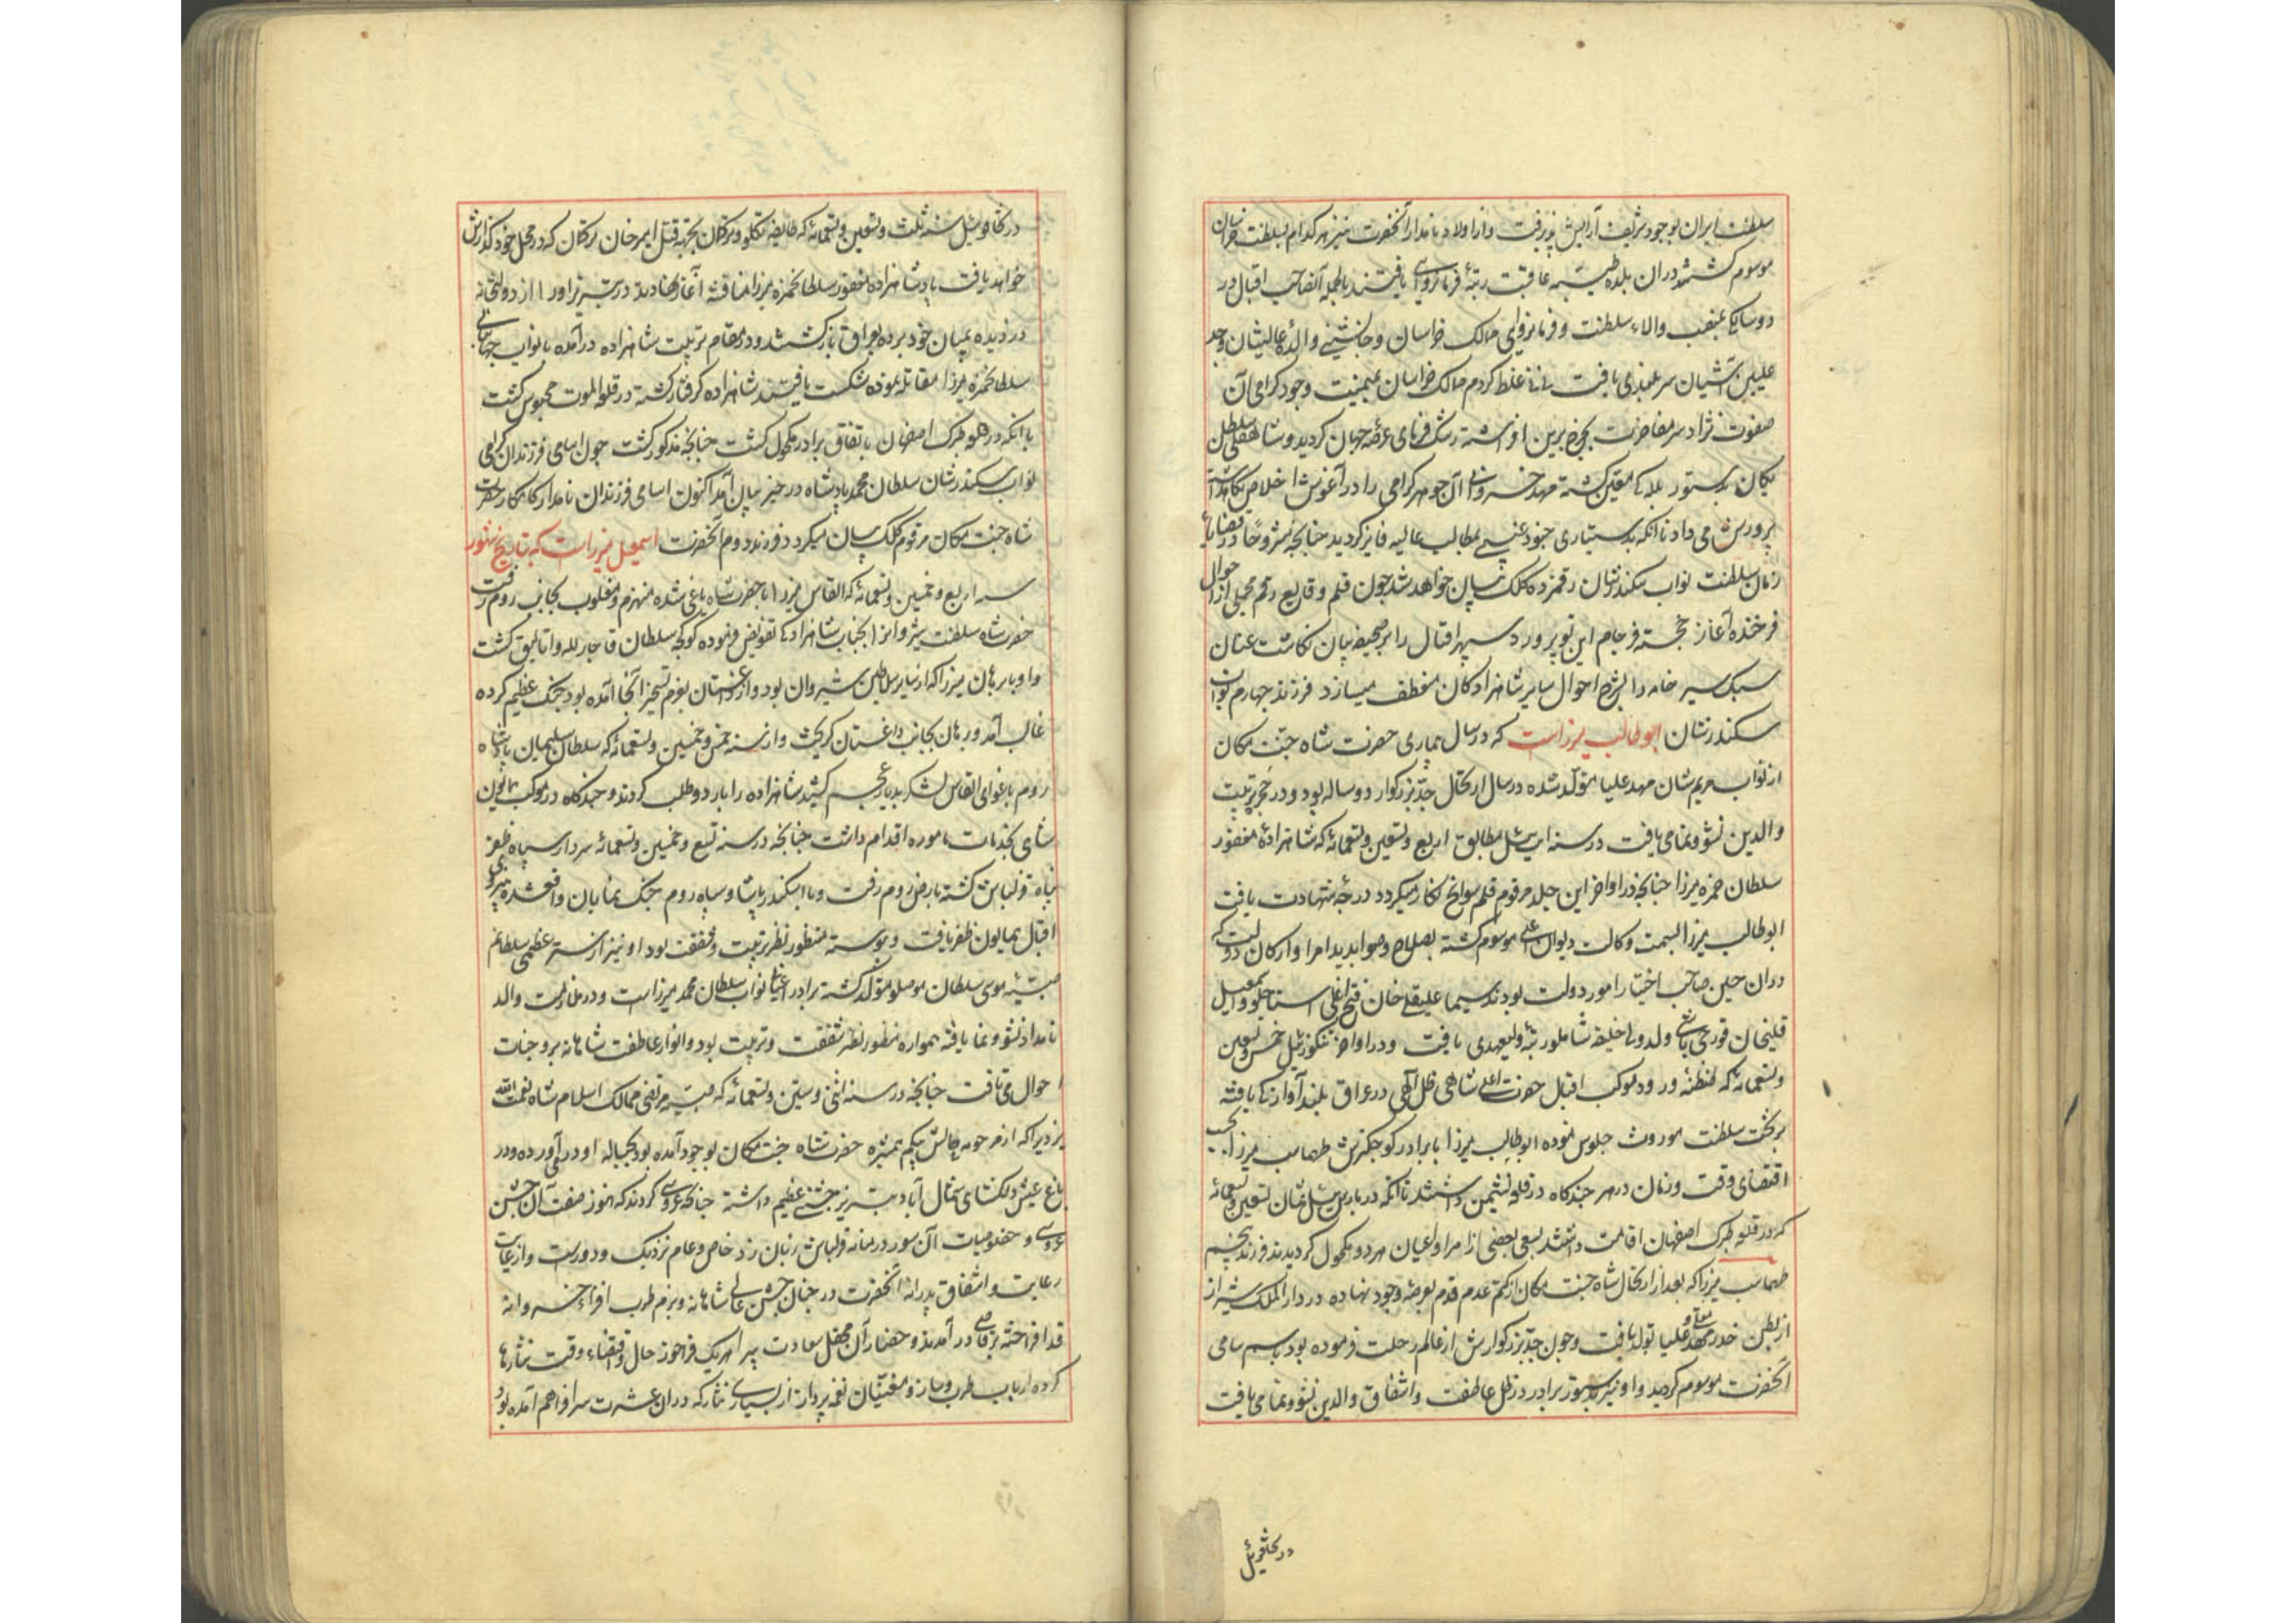 سلطنت ایران بوجود شریف آرایش پذیرفت و از اولاد نامدار آنحضرت نیز هر کدام بسلطنت خراسان
موسوم کشتند دران بلده طیبه عاقبت رتبهٔ فرمانروایی یافتند بالجمله آنصاحب اقبال در
دوسالکی بمنصب والاء سلطنت و فرمانروای ممالک خراسان و جانشینی والدهٔ عالیشان و جد
علیین آشیان سر بلندی یافت نی نی غلط کردم ممالک خراسان بمیمنت وجود کرامی آن
صفوت نژاد سر مفاخرت بچرخ برین افراشته رشک فرمای عرصهٔ جهان کردید و شاهقلی سلطان
یکان بدستور بللکی معین کشته مهد خسروانی آن جوهر کرامی را در آغوش اخلاص نکاهداشته
پرورش می داد تا انکه بدستیاری جنود غیبی بمطالب عالیه فایز کردید چنانچه مشروحا در قضایاء
زمان سلطنت نواب سکندرشان رقمزده کلک بیان خواهد شد چون قلم وقایع رقم مجملی از احوال
فرخنده آغاز خجسته فرجام این نو پرورد سپهر اقبال را بر صحیفه بیان نکاشت عنان
سبک سیر خامه را بشرح احوال سایر شاهزادکان منعطف میسازد فرزند چهارم نواب
سکندرشان ابوطالب میرزاست که در سال بیماری حضرت شاه جنت مکان
از نواب مریم شان مهد علیا متولد شده در سال ارتحال جد بزرکوار دو ساله بود و در حجر تربیت
والدین نشو و نمامی یافت در سنه ایت ئیل مطابق اربع و تسعین و تسعمائه که شاهزادهٔ مغفور
سلطان حمزه میرزا چنانچه در اواخر این جلد مرقوم قلم سوانح نکار میکردد درجهٔ شهادت یافت
ابوطالب میرزا بسمت وکالت دیوان اعلی موسوم کشته بصلاح و صوابدید امرا و ارکان دولت که
دران حین صاحب اختیار امور دولت بودند سیما علیقلی خان فتح اغلی استاجلو و اسمعیل
قلیخان قورچی باشی ولد ولی خلیفه شاملو رتبهٔ ولیعهدی یافت و در اواخر تنکوز ئیل خمس و تسعین
و تسعمائه که طنطنهٔ ورود موکب اقبال حضرت اعلی شاهی ظل الهی در عراق بلند آوازه کی یافته
بر تخت سلطنت موروث جلوس نموده ابوطالب میرزا با برادر کوچکترش طهماسب میرزا بحسب
اقتضای وقت و زمان در هر چندکاه در قلعه نشیمن داشتند تا انکه در بارس ئیل ثمان تسعین و تسعمائه
که در قلعه طبرک اصفهان اقامت داشتند بسعی بعضی از امرا و اعیان هر دو مکحول کردیدند فرزند پنجم
طهماسب میرزا که بعد از ارتحال شاه جنت مکان از کتم عدم قدم بعرصهٔ وجود نهاده در دار الملک شیراز
از بطن خدر معلی و مهد علیا تولد یافت و چون جد بزرکوارش از عالم رحلت فرموده بود باسم سامی
آنحضرت موسوم کردید و او نیز بدستور برادر در ظل عاطفت و اشفاق والدین نشو و نما می یافت
در تخاقوی ئیل
در تخاقوی ئیل سنه ثلث و تسعین و تسعمائه که طایفه تکلو و ترکمان بجهة قتل امیر خان ترکمان که در محل خود کذارش
خواهد یافت با پادشاهزاده مغفور سلطان حمزه میرزا مناقشه آغاز نهادند در تبریز او را از دولتخانه
دزدیده بمیان خود برده بعراق باز کشتند و در مقام تربیت شاهزاده درآمده با نواب جهانبانی
سلطان حمزه میرزا مقاتله نموده شکست یافتند شاهزاده کرفتار کشته در قلعه الموت محبوس کشت
تا انکه در قلعه طبرک اصفهان باتفاق برادر مکحول کشت چنانچه مذکور کشت چون اسامی فرزندان کرامی
نواب سکندرشان سلطان محمد پادشاه در حیز بیان آمد اکنون اسامی فرزندان نامدار کامکار حضرت
شاه جنت مکان مرقوم کلک بیان میکردد فرزند دوم آنحضرت اسمعیل میرزاست که بتاریخ شهور
سنه اربع و خمسین و تسعمائه که القاس میرزا با حضرت شاه یاغی شده منهزم و مغلوب بجانب روم رفت
حضرت شاه سلطنت شیروانرا بجناب شاهزادکی تفویض فرموده کوکجه سلطان قاجار لله و اتالیق کشت
و او با برهان میرزا که از نبایر سلاطین شیروان بود و از داغستان بعزم تسخیر آنجا آمده بود جنک عظیم کرده
غالب آمد و برهان بجانب داغستان کریخت و از سنه خمس و خمسین و تسعمائه که سلطان سلیمان پادشاه
روم باغوای القاس لشکر بدیار عجم کشید شاهزاده را باردو طلب کردند و چندکاه در موکب همایون
شاهی بخدمات ماموره اقدام داشت چنانچه در سنه تسع و خمسین و تسعمائه سردار سپاه ظفر
پناه قزلباش کشته بارض روم رفت و با اسکندر پاشا و سپاه روم جنک نمایان واقع شده بنیروی
اقبال همایون ظفر یافت و پیوسته منظور نظر تربیت و شفقت بود او نیز از ستر عظمی سلطانم
صبیهٔ موسی سلطان موصلو متولد کشته برادر اعیانی نواب سلطان محمد میرزاست و در ملازمت والد
نامدار نشو و نما یافته همواره منظور نظر شفقت و تربیت بود و انوار عاطفت شاهانه بر وجنات
احوال می تافت چنانچه در سنه اثنی و ستین و تسعمائه که صبیهٔ مرتضی ممالک اسلام شاه نعمت الله
یزدیرا که از مرحومه خانش بیکم همشیره حضرت شاه جنت مکان بوجود آمده بود بحبالهٔ او در می آورده و در
باغ عیش دلکشای شمال آباد تبریز جشنی عظیم داشته چنانکه عروسی کردند که هنوز صفت آن جشن
عروسی و خصوصیات آن سور در میانه قزلباش زبان زد خاص و عام نزدیک و دورست و از غایت
رعایت و اشفاق پدرانه آنحضرت در چنان جشن عالی شاهانه و بزم طرب افزاء خسروانه
قد افراخته برقاصی در آمدند و حضار آن محفل سعادت پیرا هر یک فراخور حال و اقتضاء وقت نثارها
کرده ارباب طرب و ساز و مغنیان نغمه پرداز از بسیاری نثار که دران عشرت سرا فراهم آمده بود